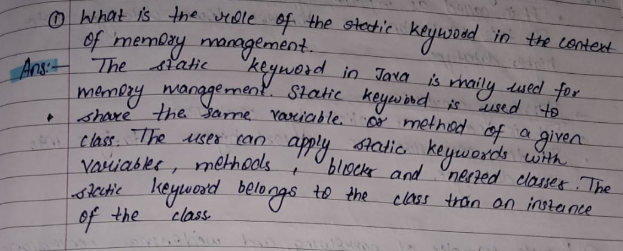 ① What is the role of the static keyword in the context
of memory management.
Ans:- The static keyword in Java is maily used for
memory management. Static keyword is used to
share the same variable or method of a given
class. The user can apply static keywords with
variables, methods, blocks and nested classes. The
static keyword belongs to the class tran an instance
of the class